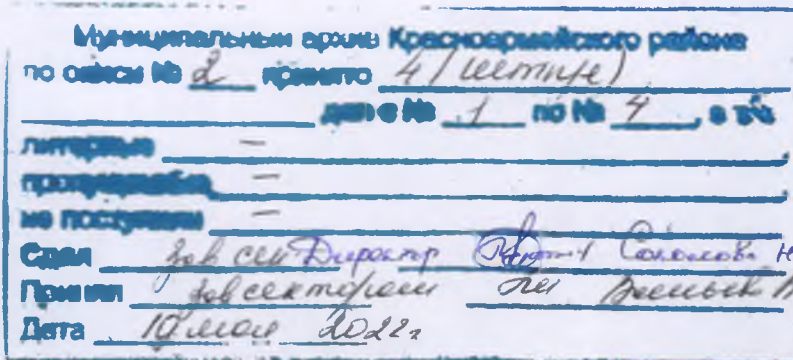 Муниципальный архив Красноармейского района
по описи № 2 принято 4 (четыре)
дел с № 1 по № 4, в т.ч.
литерные —
пропущенные —
не поступили —
Сдал Зав сек Директор Соколова Н
Принял Зав сектором
Дата 10 мая 2022г